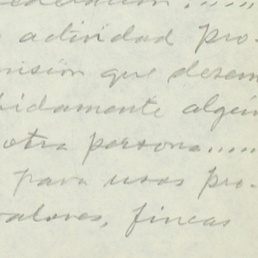 ederación......
actividad pro-
misión que desem
bidamente algún
otra persona.....
para usos pro-
valores, fincas